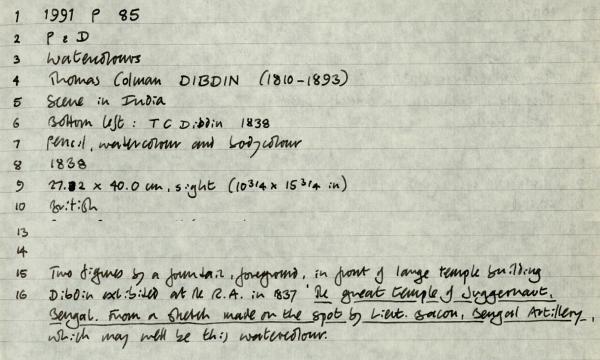 1 1991 P 85
2 P & D
3 Watercolours
4 Thomas Colman DIBDIN (1810-1893)
5 Scene in India
6 Bottom left: T C Dibdin 1838
7 Pencil, watercolour and bodycolour
8 1838
9 27.2 x 40.0 cm, sight (10 3/4 x 15 3/4 in)
10 British
13
14
15 Two figures by a fountain, foreground, in front of large temple building
16 Dibdin exhibited at the R.A. in 1837 'The great temple of Juggernaut,
Bengal. From a sketch made on the spot by Lieut. Bacon, Bengal Artillery,
which may well be this watercolour.